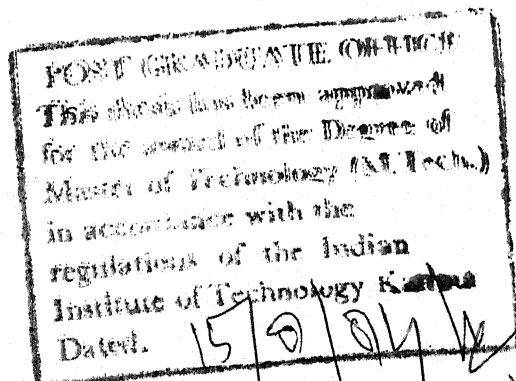 POST GRADUATE OFFICE
This thesis has been approved
for the award of the Degree of
Master of Technology (M. Tech.)
in accordance with the
regulations of the Indian
Institute of Technology Kanpur
Dated. 15